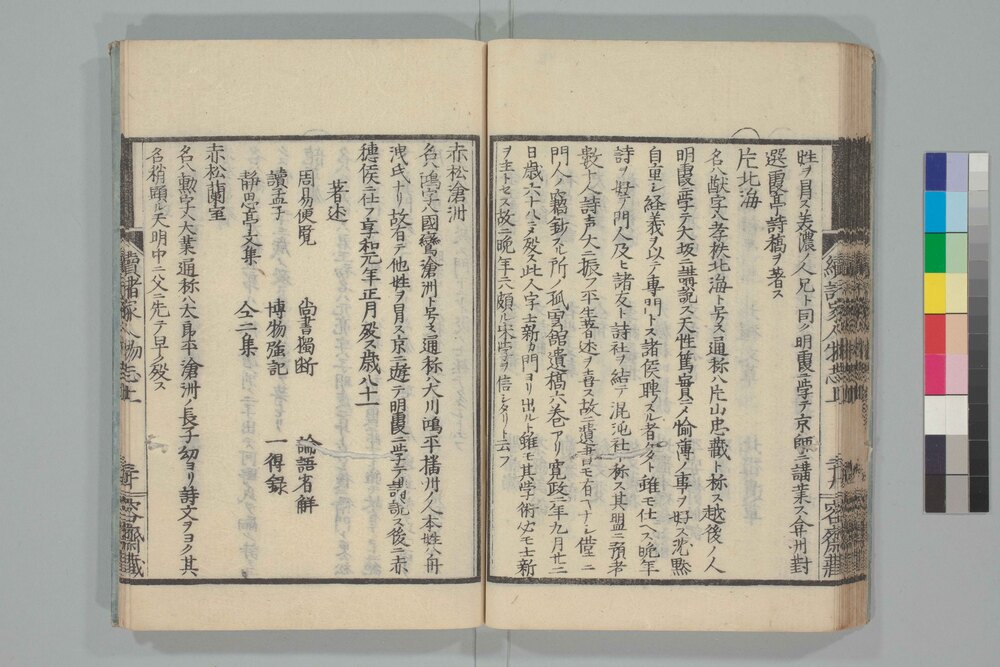 姓ヲ冒ス美濃ノ人兄ト同ク明霞ニ学テ京師ニ講業ス弇州尉
選霞亭詩稿ヲ著ス
片北海
名ハ猷字ハ孝秩北海ト号ス通称ハ片山忠藏ト称ス越後ノ人
明霞ニ学テ大坂ニ講説ス天性篤実ニメ愉薄ノ事ヲ好ス沈黙
自重シ経義ヲ以テ専門トス諸侯聘スル者多ト雖モ仕ヘス晩年
詩ヲ好テ門人及ヒ諸友ト詩社ヲ結テ混沌社ト称ス其盟ニ預者
数十人詩声大ニ振フ平生著述ヲ喜ス故ニ遺書モ有ヿナシ僅ニ
門人ノ竊鈔スル所ノ孤雲館遺稿六巻アリ寛政二年九月廿二
日歳六十八ニメ殁ス此人宇士新カ門ヨリ出ルト雖モ其学術必モ士新
ヲ主トセス故ニ晩年ニハ頗ル宋学ヲ信シタリト云フ
赤松滄洲
名ハ鴻字ハ國鸞滄洲ト号ス通称ハ大川鳴平播州ノ人本姓ハ舟
洩氏ナリ故有テ他姓ヲ冒ス京ニ遊テ明霞ニ学テ講説ス後ニ赤
穂侯ニ仕フ享和元年正月殁ス歳八十一
著述
周易便覧 尚書獨断 論語省解
讀孟子 博物強記 一得録
静思亭文集 仝二集
赤松蘭室
名ハ勲字ハ大業通称ハ太郎平滄洲ノ長子幼ヨリ詩文ヲヨク其
名稍顕ル天明中ニ父ニ先テ早ク殁ス
續諸家人物志上
容齋藏